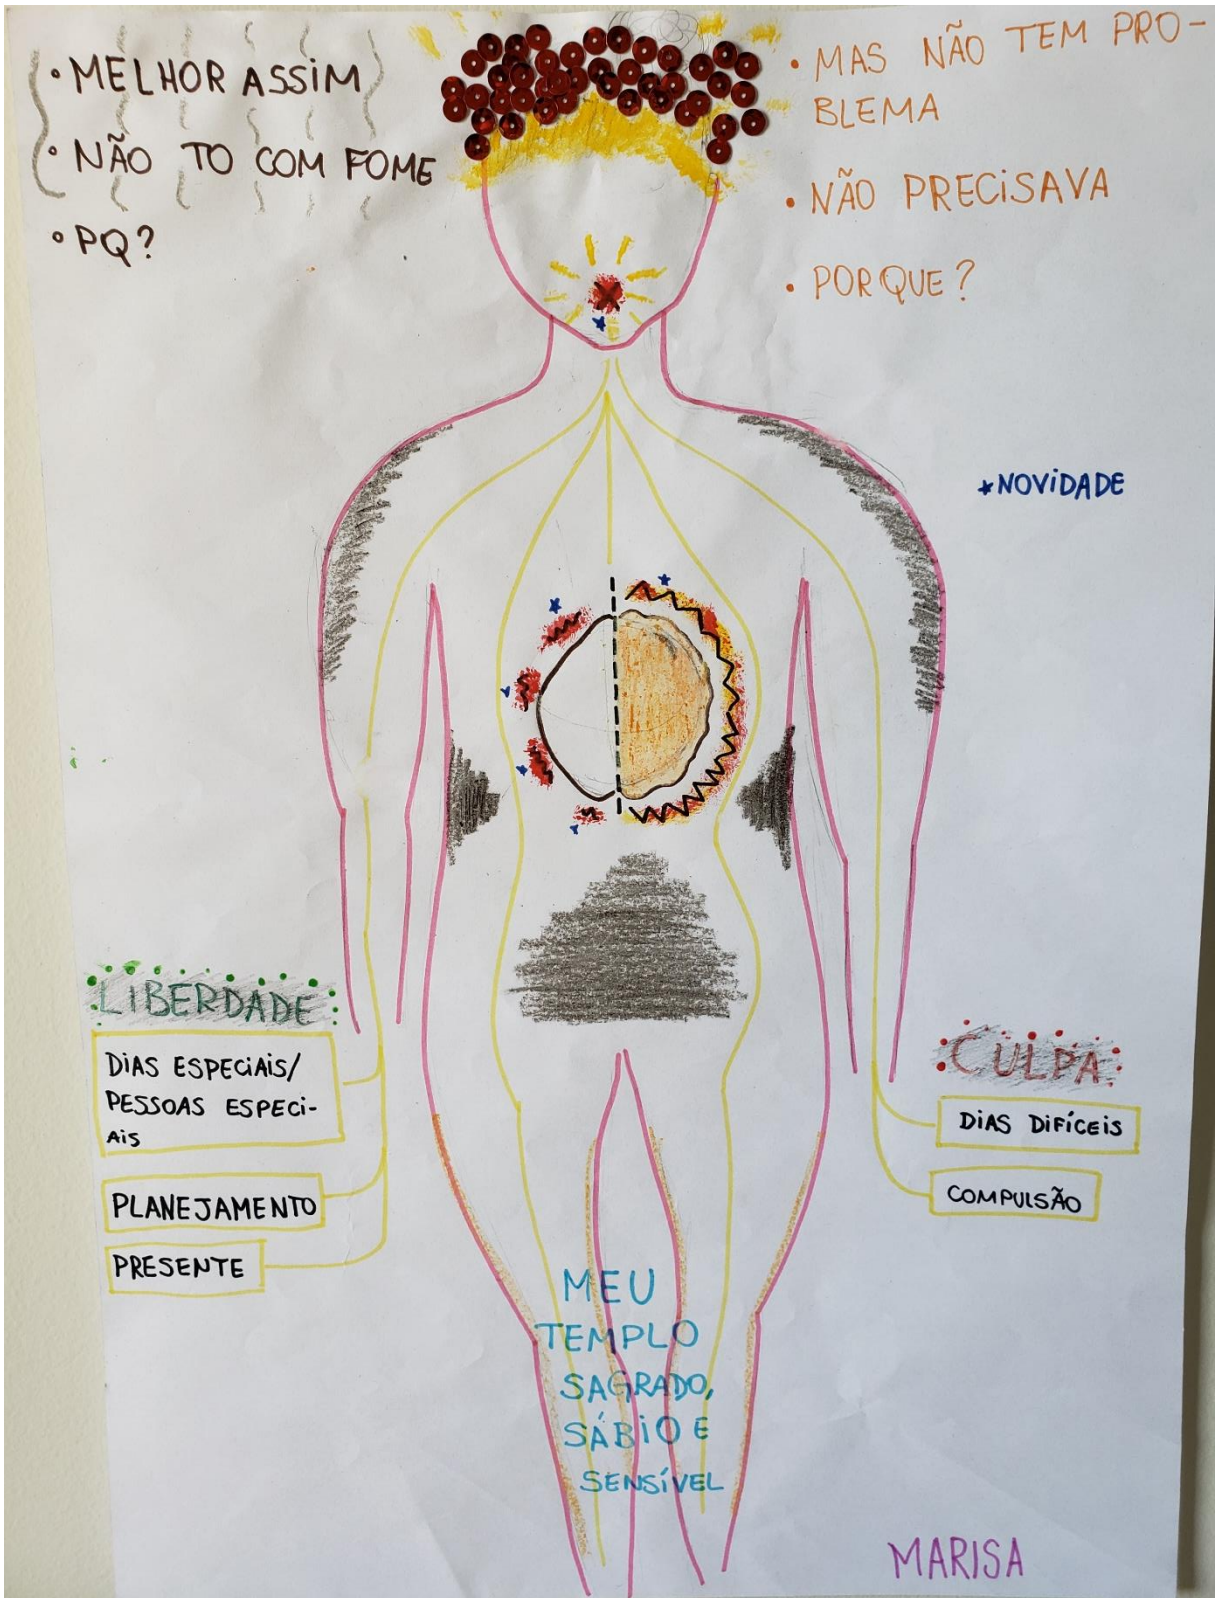 • MELHOR ASSIM
• NÃO TO COM FOME
• PQ?
• MAS NÃO TEM PRO-
BLEMA
• NÃO PRECISAVA
• PORQUE?
*NOVIDADE
LIBERDADE
DIAS ESPECIAIS/
PESSOAS ESPECI-
AIS
PLANEJAMENTO
PRESENTE
CULPA
DIAS DIFÍCEIS
COMPULSÃO
MEU
TEMPLO
SAGRADO,
SÁBIO E
SENSÍVEL
MARISA